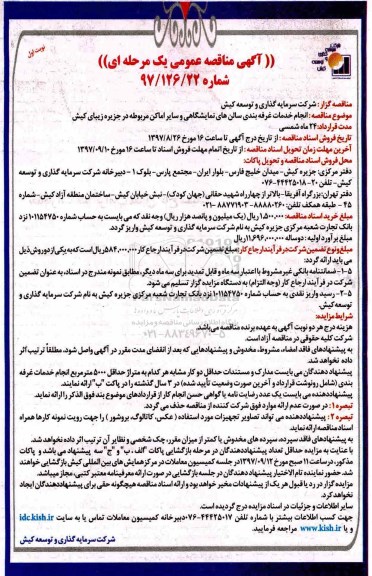 نوبت اول
(( آگهی مناقصه عمومی یک مرحله ای))
شماره ۹۷/۱۲۶/۲۲
مناقصه گزار : شرکت سرمایه گذاری و توسعه کیش
موضوع مناقصه : انجام خدمات غرفه بندی سالن های نمایشگاهی و سایر اماکن مربوطه در جزیره زیبای کیش
مدت قرارداد: ۲۴ ماه شمسی
تاریخ فروش اسناد مناقصه : از تاریخ درج آگهی تا ساعت ۱۶ مورخ ۱۳۹۷/۸/۲۶
آخرین مهلت زمان تحویل اسناد مناقصه : از تاریخ اتمام مهلت فروش اسناد تا ساعت ۱۶ مورخ ۱۳۹۷/۰۹/۱۰
محل فروش اسناد مناقصه و تحویل پاکات:
دفتر مرکزی: جزیره کیش- میدان خلیج فارس- بلوار ایران- مجتمع پارس- بلوک ۱ - دبیرخانه شرکت سرمایه گذاری و توسعه
کیش- تلفن ۲۰-۰۷۶-۴۴۴۲۵۰۱۸
دفتر تهران: بزرگراه آفریقا- بالاتر از چهارراه شهید حقانی (جهان کودک)- نبش خیابان کیش- ساختمان منطقه آزاد کیش- شماره
۴۵ - طبقه همکف تلفن: ۸۸۸۸۰۲۶۰ - ۸۸۷۷۱۹۰۳-۰۲۱
مبلغ خرید اسناد مناقصه: ۱,۵۰۰,۰۰۰ ریال (یک میلیون و پانصد هزار ریال) وجه نقد که می بایست به حساب شماره ۱۰۱۱۵۴۷۵۰ نزد
بانک تجارت شعبه مرکزی جزیره کیش به نام شرکت سرمایه گذاری و توسعه کیش واریز گردد.
مبلغ برآورد اولیه : دوساله ۱۱,۶۹۶,۰۰۰,۰۰۰ ریال
مبلغ و نوع تضمین شرکت در فرآیند ارجاع کار : مبلغ تضمین شرکت در فرآیند ارجاع کار ۵۸۴,۰۰۰,۰۰۰ ریال است که به یکی از دو روش ذیل
می باید ارائه گردد:
۵-۱- ضمانتنامه بانکی غیر مشروط با اعتبار سه ماه و قابل تمدید برای سه ماه دیگر، مطابق نمونه مندرج در اسناد، به عنوان تضمین
شرکت در فرآیند ارجاع کار (وجه التزام) به دستگاه مزایده گزار تسلیم می شود.
۵-۲- رسید واریز نقدی به حساب شماره ۱۰۱۱۵۴۷۵۰ نزد بانک تجارت شعبه مرکزی جزیره کیش به نام شرکت سرمایه گذاری و
توسعه کیش.
شرایط مزایده:
هزینه درج هر دو نوبت آگهی به عهده برنده مناقصه می باشد.
شرکت کلیه حقوقی در مناقصه آزاد است.
به پیشنهادهای فاقد امضاء، مشروط، مخدوش و پیشنهادهایی که بعد از انقضای مدت مقرر در آگهی واصل شود، مطلقاً ترتیب اثر
داده نخواهد شد.
پیشنهاد دهندگان می بایست مدارک و مستندات حداقل دو کار مشابه هر کدام به متراژ حداقل ۵۰۰۰ مترمربع انجام خدمات غرفه
بندی (شامل رونوشت قرارداد و آخرین صورت وضعیت تأیید شده) در ۳ سال گذشته را در پاکت "ب" ارائه نمایند.
پیشنهاددهنده می بایست یک عدد رضایت نامه یا گواهی حسن انجام کار از قراردادهای موضوع بند فوق الذکر را ارائه نماید.
تبصره ۱ : در صورت عدم ارائه موارد فوق شرکت کننده از مناقصه حذف می گردد.
تبصره ۲ : پیشنهاددهنده می تواند تصاویر تجهیزات مورد استفاده (عکس، کاتالوگ، بروشور) را جهت رویت نمونه کارها همراه
اسناد مناقصه ارائه نماید.
به پیشنهادهای فاقد سپرده، سپرده های مخدوش یا کمتر از میزان مقرر، چک شخصی و نظایر آن ترتیب اثر داده نخواهد شد.
با عنایت به مزایده حداقل تعداد پیشنهاددهندگان در مرحله بازگشایی پاکات "الف ، ب" و "ج" سه پیشنهاد می باشد و پاکات
مذکور، در ساعت ۱۱ صبح مورخ ۱۳۹۷/۰۹/۱۲ در جلسه کمیسیون معاملات در مرکز همایش های بین المللی کیش بازگشایی خواهند
شد. حضور نماینده تام الاختیار پیشنهاد دهندگان در جلسه بازگشایی در صورت ارائه معرفینامه معتبر کتبی، مجاز میباشد.
مزایده گزار در رد یا قبول هر یک از پیشنهادات مخیر خواهد بود و ارائه اسناد مناقصه هیچگونه حقی برای پیشنهاددهندگان ایجاد
نخواهد کرد.
سایر اطلاعات و جزئیات در اسناد مزایده درج گردیده است.
جهت کسب اطلاعات بیشتر با شماره تلفن ۰۷۶-۴۴۴۲۵۰۱۷ دبیرخانه کمیسیون معاملات تماس یا به سایت idc.kish.ir
و یا www.kish.ir مراجعه فرمایید.
شرکت سرمایه گذاری و توسعه کیش